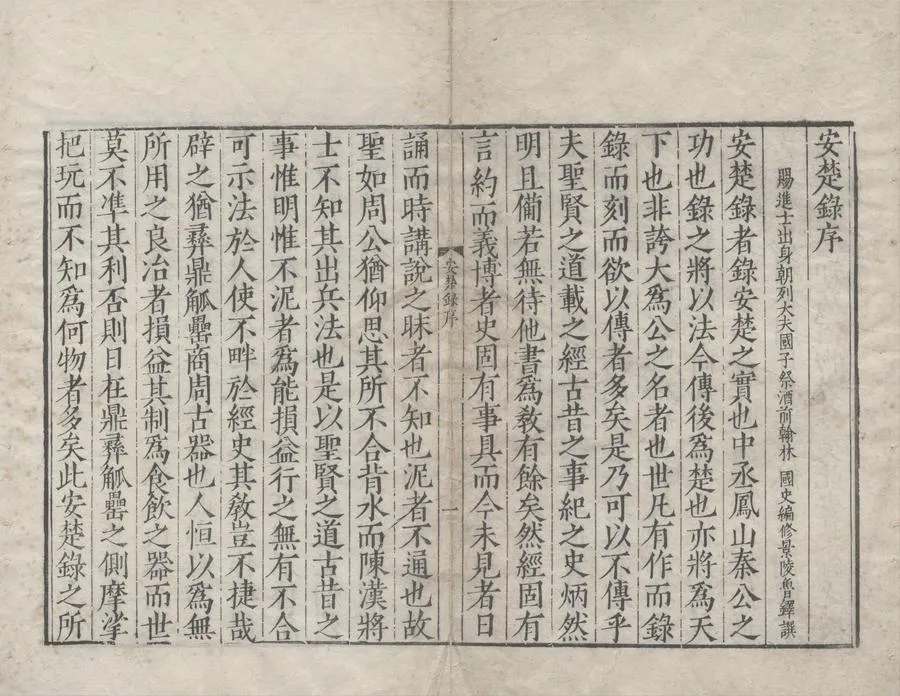 安楚錄序
賜進士出身朝列大夫國子祭酒前翰林 國史編修景陵魯鐸譔
安楚錄者錄安楚之實也中丞鳳山秦公之
功也錄之將以法今傳後爲楚也亦將爲天
下也非誇大爲公之名者也世凡有作而錄
錄而刻而欲以傳者多矣是乃可以不傳乎
夫聖賢之道載之經古昔之事紀之史炳然
明且備若無待他書爲教有餘矣然經固有
言約而義博者史固有事具而今未見者日
安楚錄序
一
誦而時講說之昧者不知也泥者不通也故
聖如周公猶仰思其所不合背水而陳漢將
士不知其出兵法也是以聖賢之道古昔之
事惟明惟不泥者爲能損益行之無有不合
可示法於人使不畔於經史其教豈不捷哉
辟之猶彞鼎觚罍商周古器也人恒以爲無
所用之良冶者損益其制爲食飲之器而世
莫不準其利否則日在鼎彞觚罍之側摩挲
把玩而不知爲何物者多矣此安楚錄之所